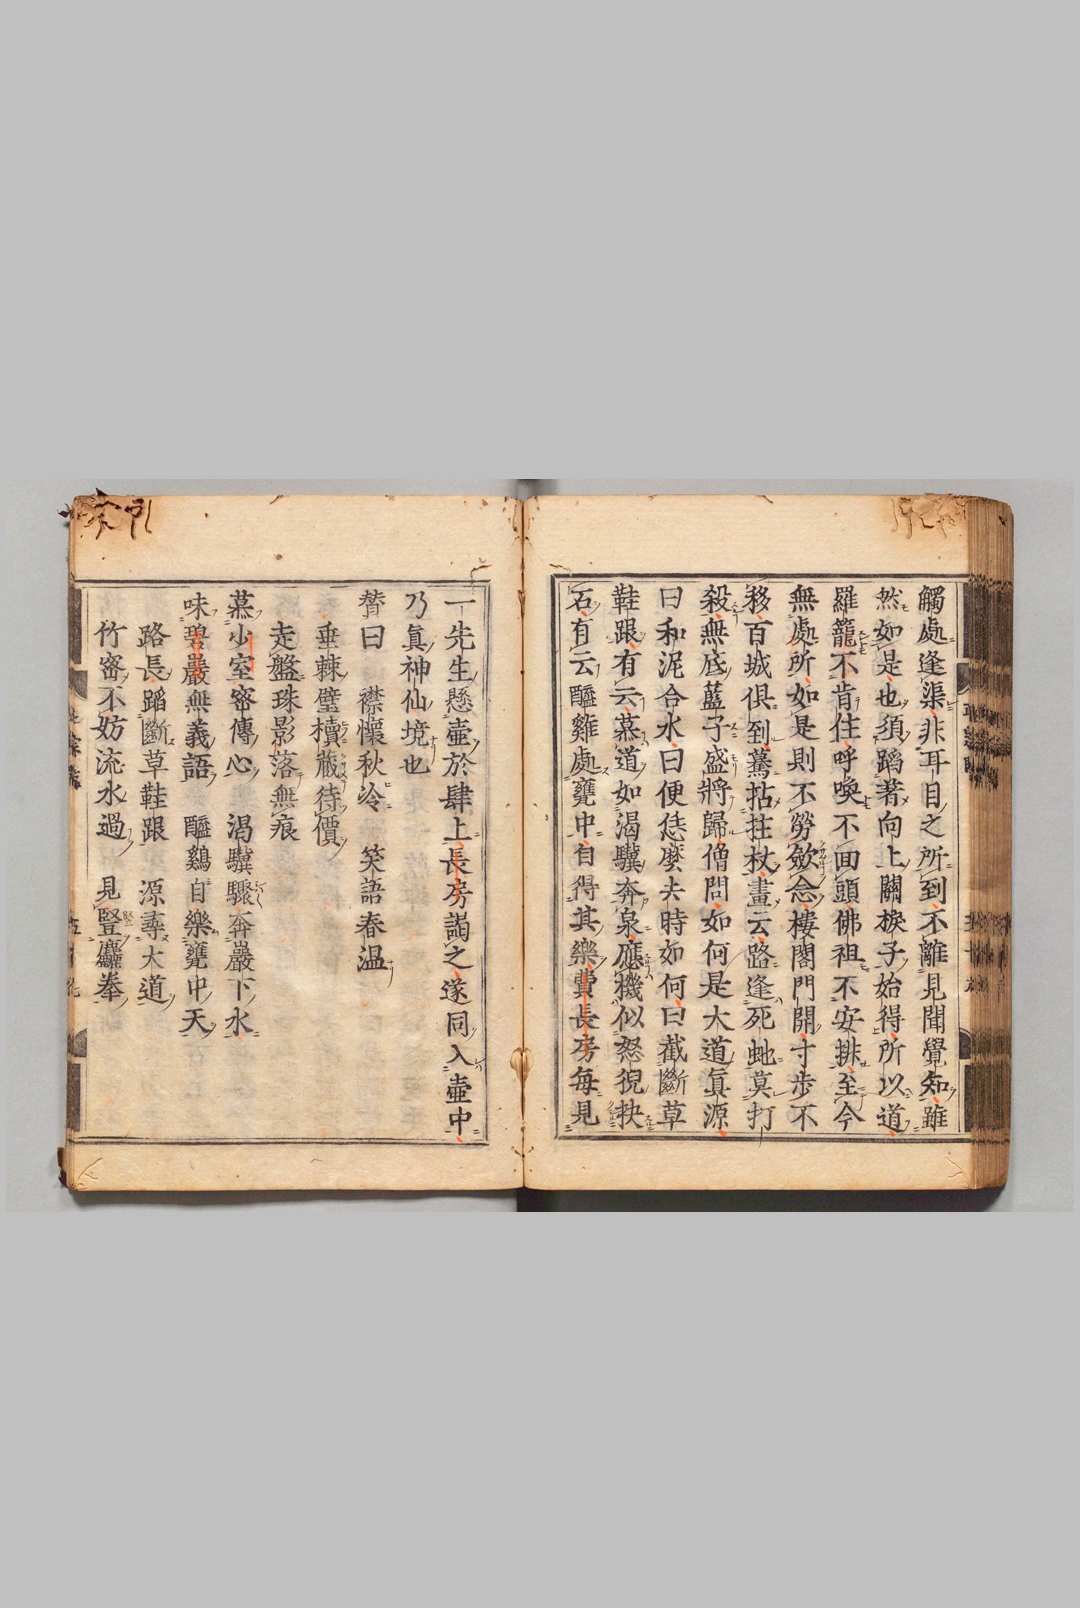 觸處逢渠非耳目之所到不離見聞覺知雖
然如是也須蹈著向上關捩子始得所以道
羅籠不肯住呼喚不回頭佛祖不安排至今
無處所如是則不勞斂念樓閣門開寸步不
移百城俱到驀拈拄杖畫云路逢死虵莫打
殺無底藍子盛將歸僧問如何是大道眞源
曰和泥合水曰便恁麼去時如何曰截斷草
鞋跟有云慕道如渴驥奔泉應機似怒猊抉
石有云醯雞處甕中自得其樂費長房每見
一先生懸壺於肆上長房謁之遂同入壺中
乃眞神仙境也
贊曰 襟懷秋冷 笑語春温
垂棘璧櫝藏待價
走盤珠影落無痕
慕少室密傳心 渴驥驟奔巖下水
味碧巖無義語 醯鷄自樂甕中天
路長蹈斷草鞋跟 源導大道
竹密不妨流水過 見豎麤拳